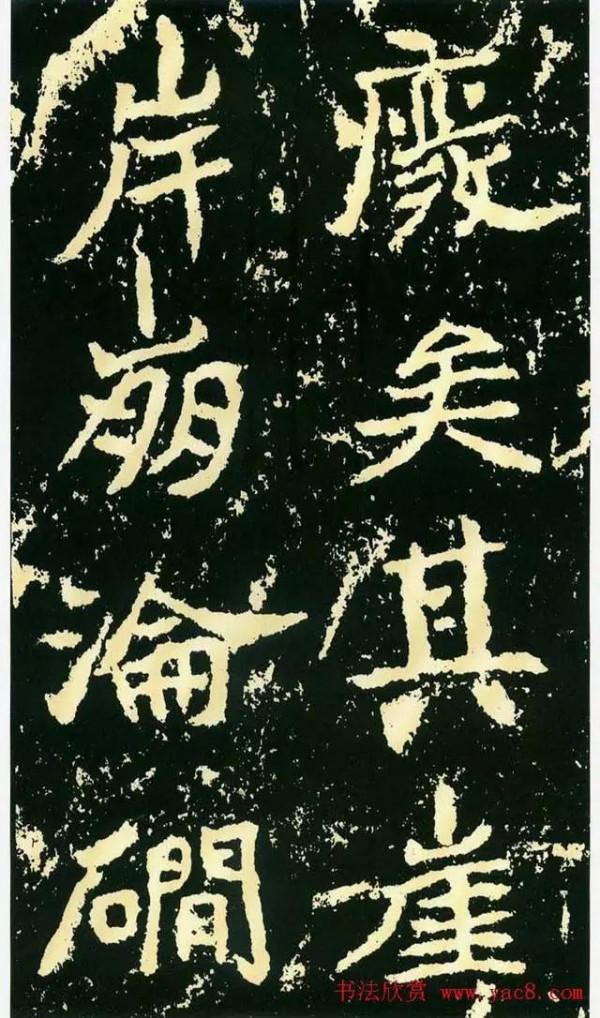 廢矣其崖
岸崩淪磵
书法欣赏 www.yac8.com